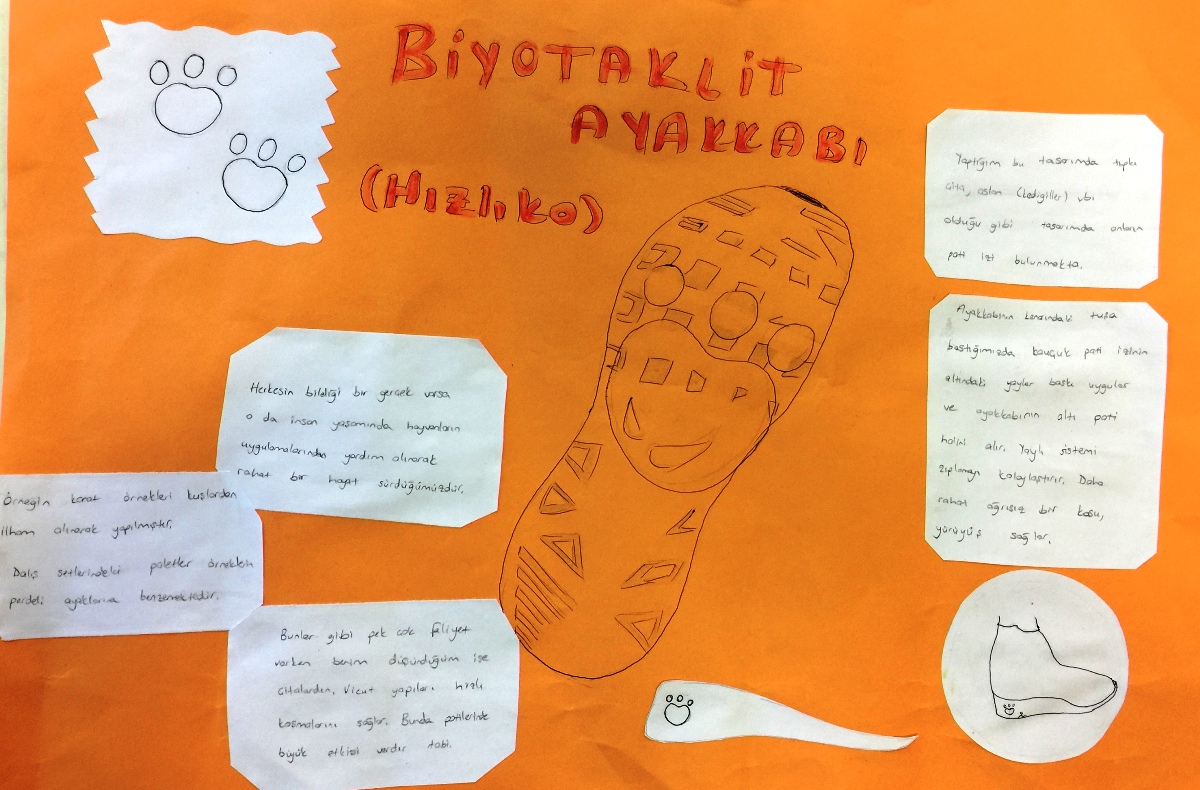 BİYOTAKLİT
AYAKKABI
(HIZLIKO)
Herkesin bildiği bir gerçek varsa
o da insan yaşamında hayvanların
uygulamalarından yardım alınarak
rahat bir hayat sürdüğümüzdür.
Örneğin kanat örnekleri kuşlardan
ilham alınarak yapılmıştır.
Dalış setlerindeki paletler örneklein
perdeli ayaklarına benzemektedir.
Bunlar gibi pek çok faliyet
varken benim düşündüğüm ise
çitalardan. Vücut yapıları hızlı
koşmalarını sağlar. Bunda patilerinde
büyük etkisi vardır tabi.
Yaptığım bu tasarımda tıpkı
çita, aslan (kedigiller) vb.
olduğu gibi tasarımda onların
pati izi bulunmakta.
Ayakkabının kenarındaki tuşa
bastığımızda kauçuk pati izinin
altındaki yaylar baskı uygular
ve ayakkabının altı pati
halini alır. Yaylı sistemi
zıplamayı kolaylaştırır. Daha
rahat ağrısız bir koşu,
yürüyüş sağlar.